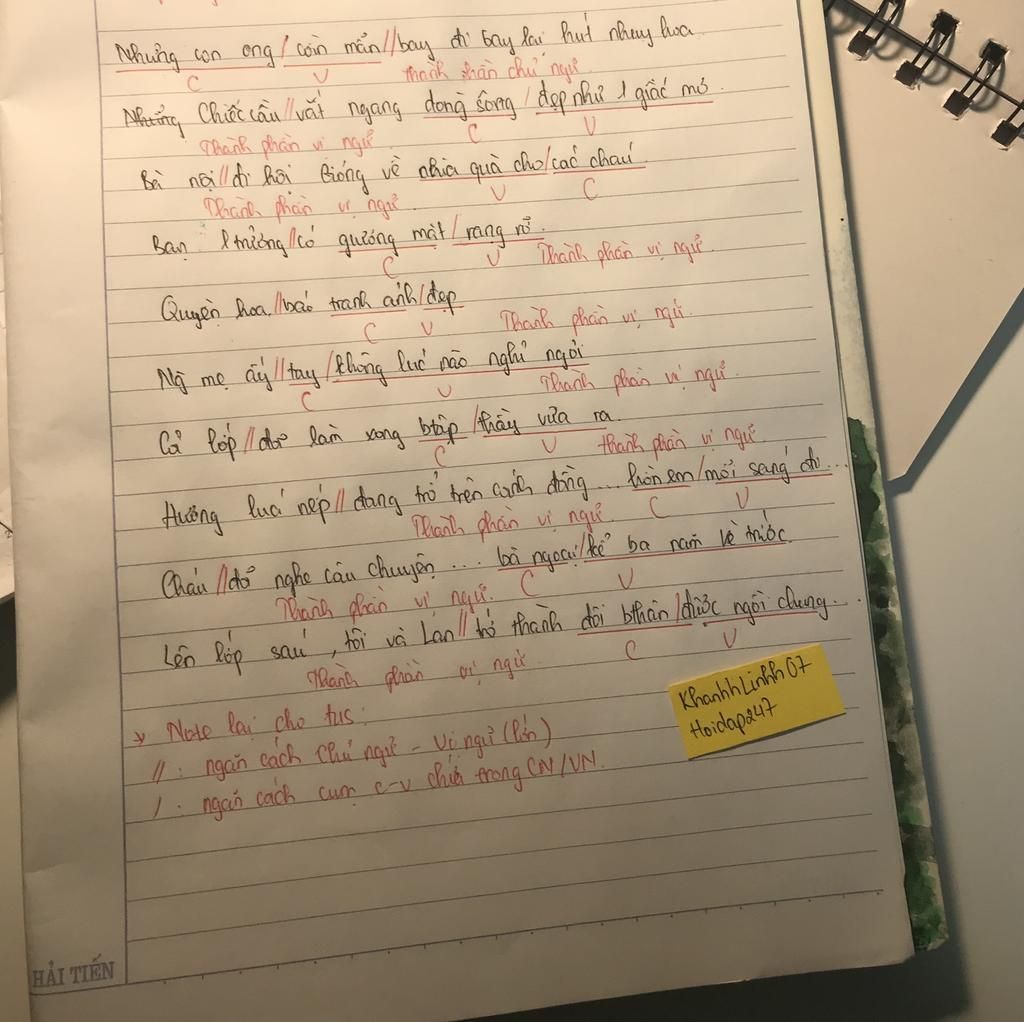 Những con ong / còn mẩn // bay đi bay lại hút nhụy hoa
C V thành phần chủ ngữ
Những Chiếc cầu // vắt ngang dòng sông / đẹp như 1 giấc mơ.
Thành phần vị ngữ C V
Bà nội // đi hội Gióng về nhìa quà cho / các cháu
Thành phần vị ngữ V C
Bạn ltrưởng // có gương mặt / rạng rỡ.
C V Thành phần vị ngữ
Quyện hoa // báo tranh ảnh / đẹp
C V Thành phần vị ngữ
Ng mẹ ấy // tay / không lúc nào nghỉ ngơi
C V Thành phần vị ngữ
Cả lớp // đã làm xong btập / thầy vừa ra.
C V thành phần vị ngữ
Hương lúa nếp // đang trổ trên cánh đồng ... hòn em / mỗi sáng đi ...
Thành phần vị ngữ C V
Cháu // đã nghe câu chuyện ... bà ngoại / kể ba năm về trước.
Thành phần vị ngữ C V
Lên lớp sáu, tôi và Lan // trở thành đôi bthân / được ngồi chung...
Thành phần vị ngữ C V
Note lại cho tus:
// : ngăn cách Chủ ngữ - Vị ngữ (lớn)
/ : ngăn cách cụm c-v chính trong CN/VN.
KhanhhLinhh07
Hoidap247
HẢI TIẾN